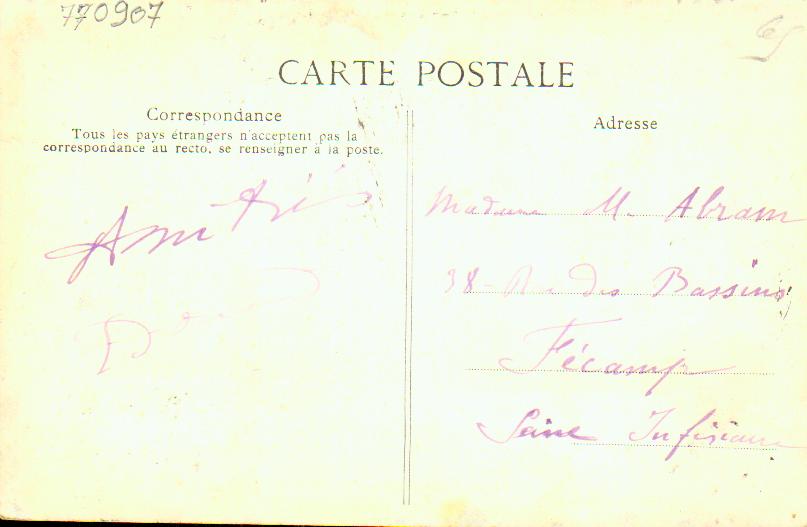 770907
65
CARTE POSTALE
Correspondance
Tous les pays étrangers n'acceptent pas la
correspondance au recto, se renseigner à la poste.
Amitiés
Adresse
Madame M. Abram
38 - Rue des Bassins
Fécamp
Seine Inférieure